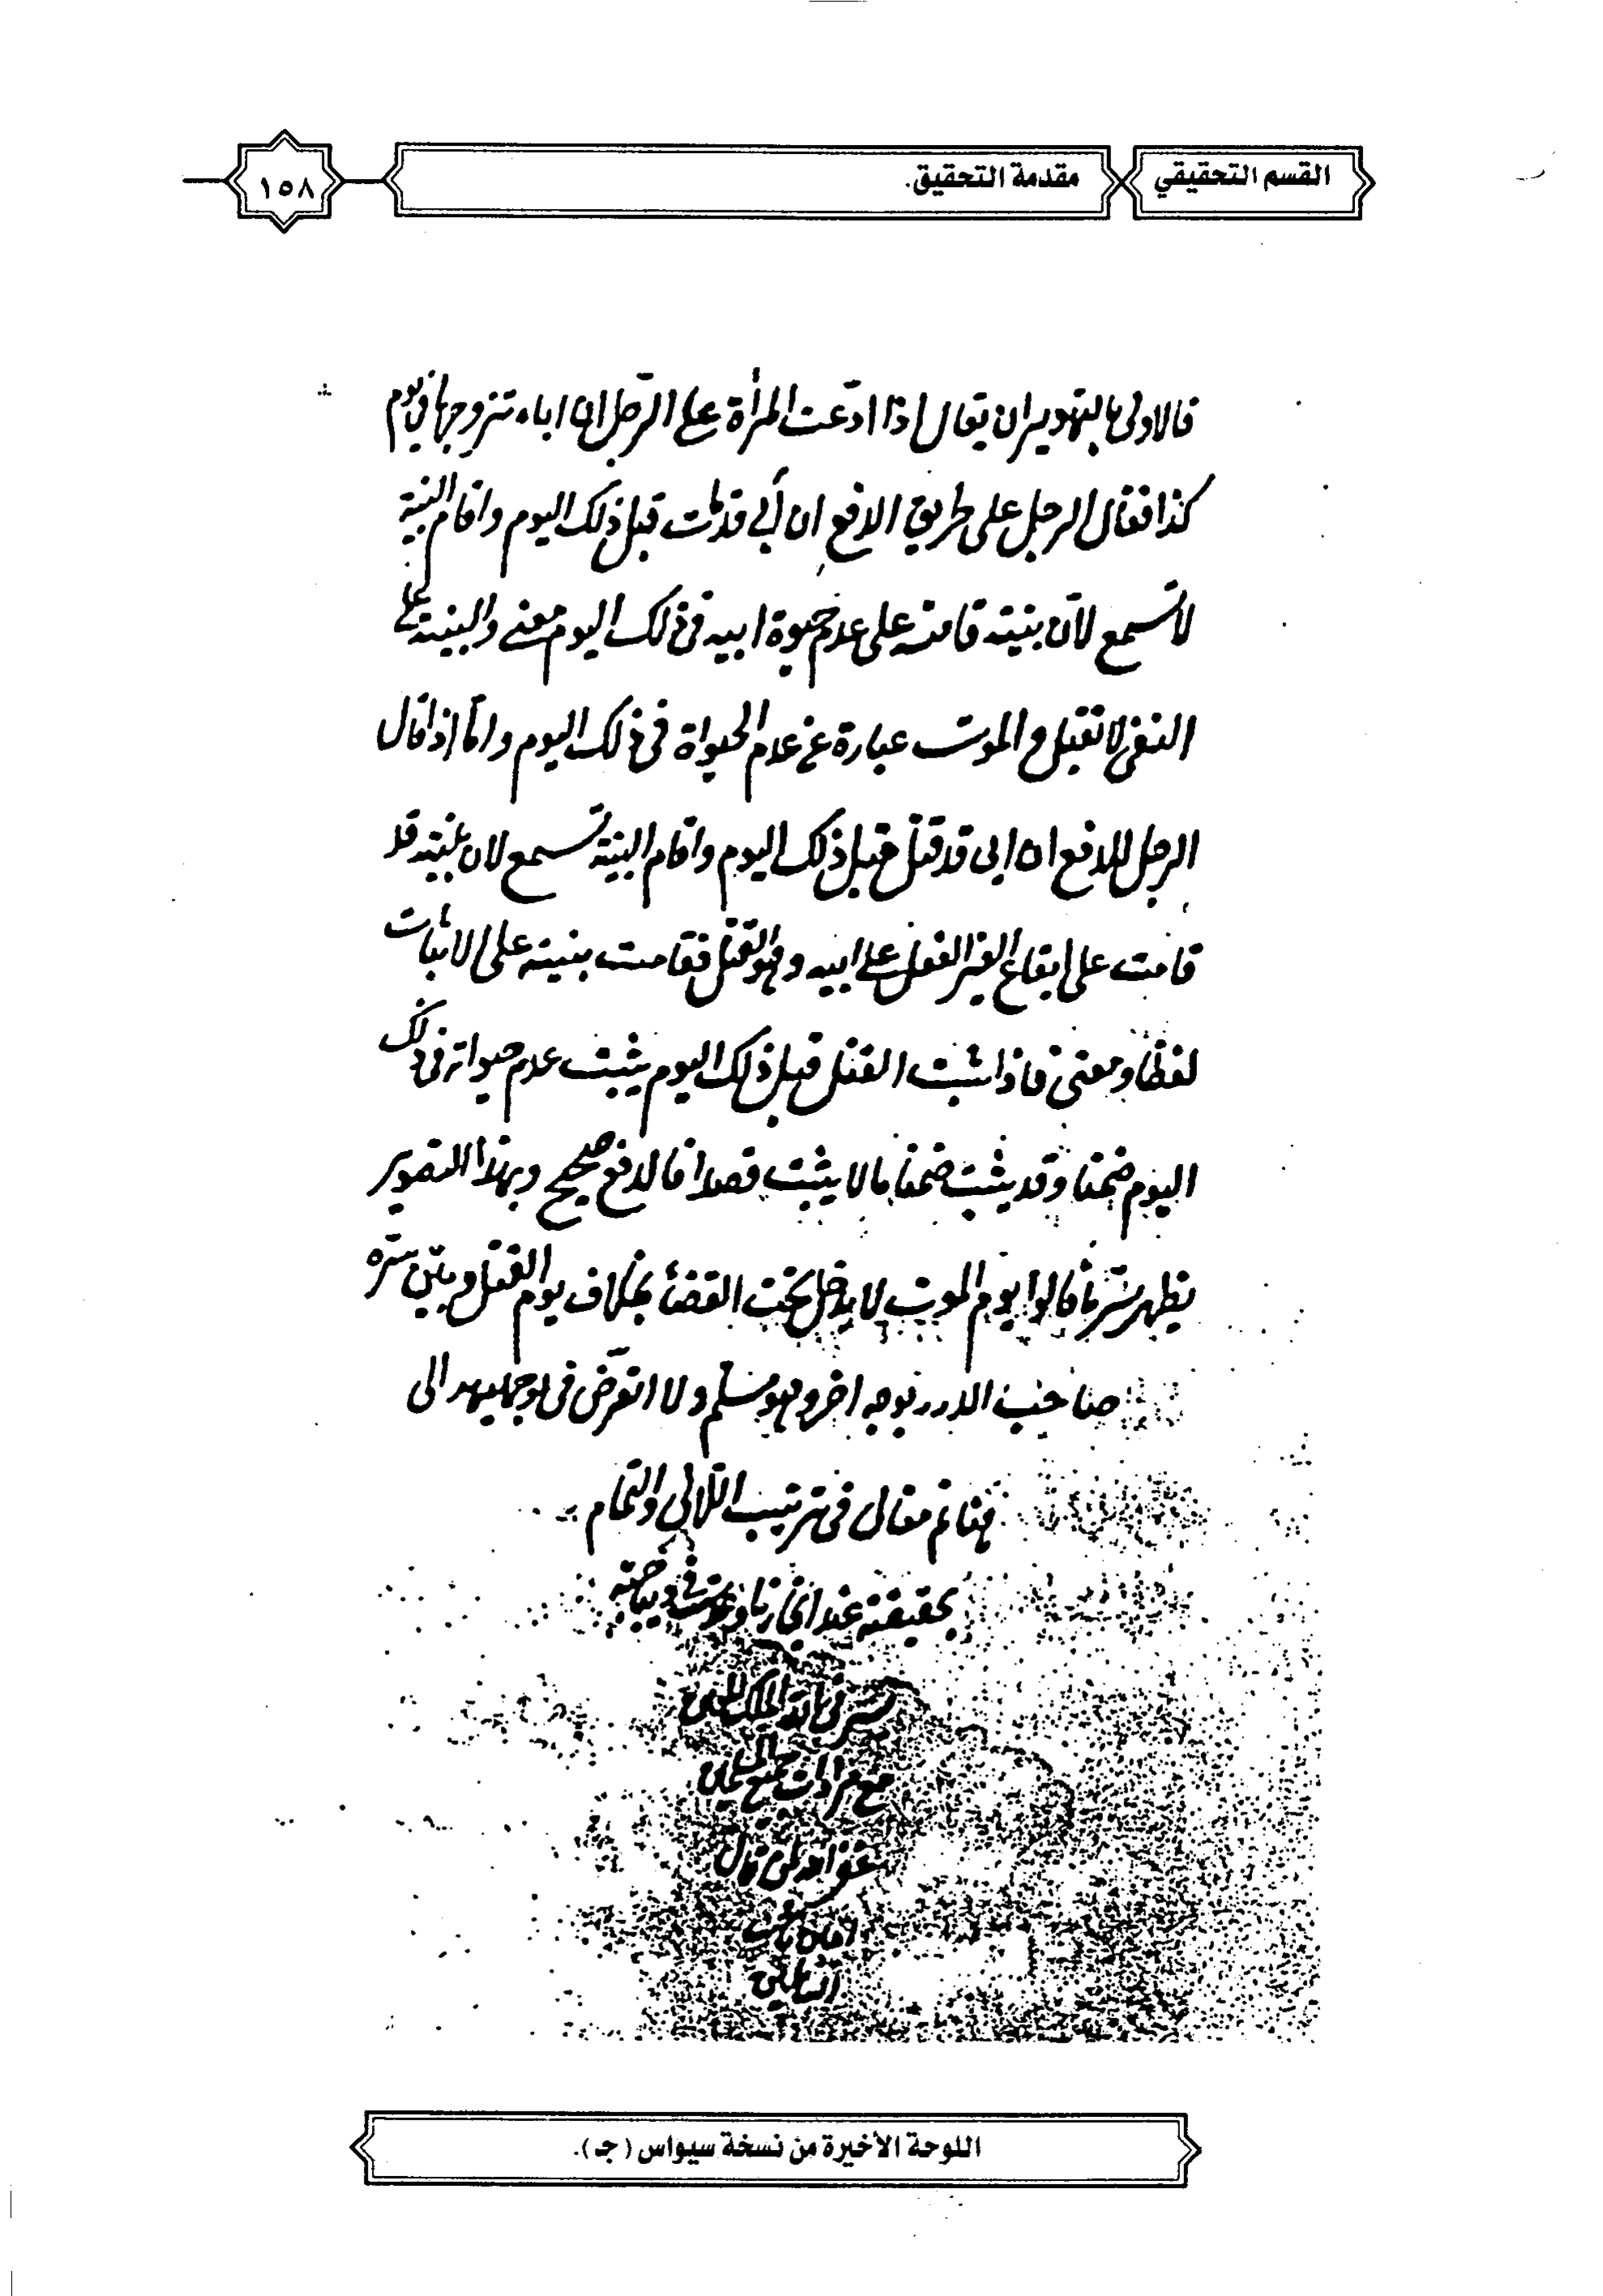 القسم التحقيقي
مقدمة التحقيق.
١٥٨
فالاولى بالتصوير ان يقال اذا ادّعت المرأة على الرّجل ان اباه تزوجها في يوم
كذا فقال الرجل على طريق الدفع ان أبي قد مات قبل ذلك اليوم واقام البينة
لا تسمع لأن بينته قامت على عدم حيوة ابيه في ذلك اليوم معنى والبينة على
النفي لا تقبل والموت عبارة عن عدم الحيواة في ذلك اليوم وامّا اذا قال
الرجل للدفع ان ابى قد قتل قبل ذلك اليوم واقام البينة تسمع لان بينته قد
قامت على ايقاع الغير الفعل على ابيه وهو القتل فقامت بينته على الاثبات
لفظا ومعنى فاذا ثبت القتل قبل ذلك اليوم يثبت عدم حيواته في ذلك
اليوم ضمنا وقد يثبت ضمنا ما لا يثبت قصدا فالدفع صحيح وبهذا التصوير
يظهر سرّ ما قالوا يوم الموت لا يدخل تحت القضاء بخلاف يوم القتل وبيّن سرّه
صاحب الدرر بوجه اخر وهو مسلم ولا اتعرّض في توجيهه الى
هنا تم مقال في ترتيب اللآلي والتمام
بحقيقته عند
جميع
قال
اللوحة الأخيرة من نسخة سيواس ( جـ ).